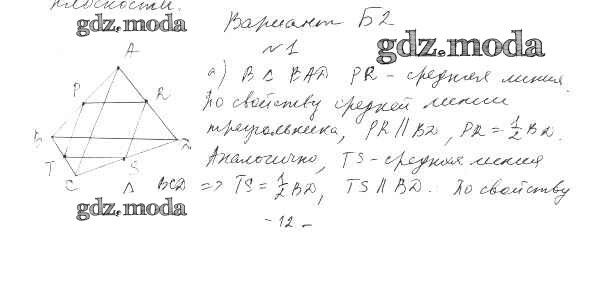 плоскости.
gdz.moda
Вариант Б2
№1
gdz.moda
A
P
R
B
D
T
S
C
а) В Δ BAD PR - средняя линия.
По свойству средней линии
треугольника, PR || BD, PR = 1/2 BD.
Аналогично, TS - средняя линия
Δ BCD => TS = 1/2 BD, TS || BD. По свойству
gdz.moda
- 12 -